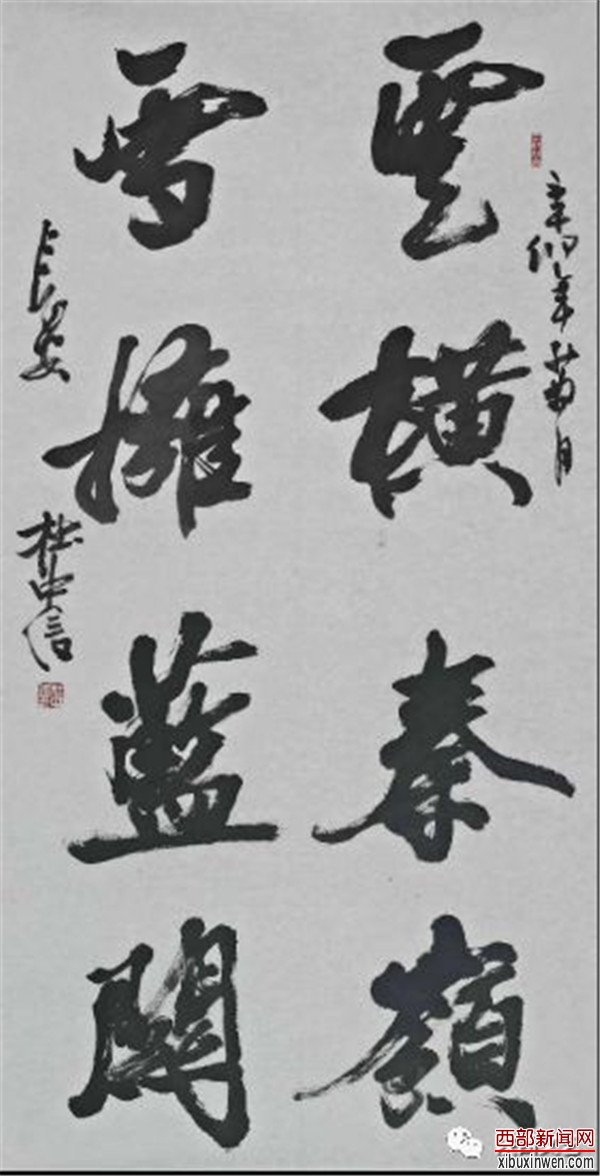 辛卯年菊月
雲橫秦嶺
雪擁藍關
長安
杜中信
西部新闻网
xibuxinwen.com